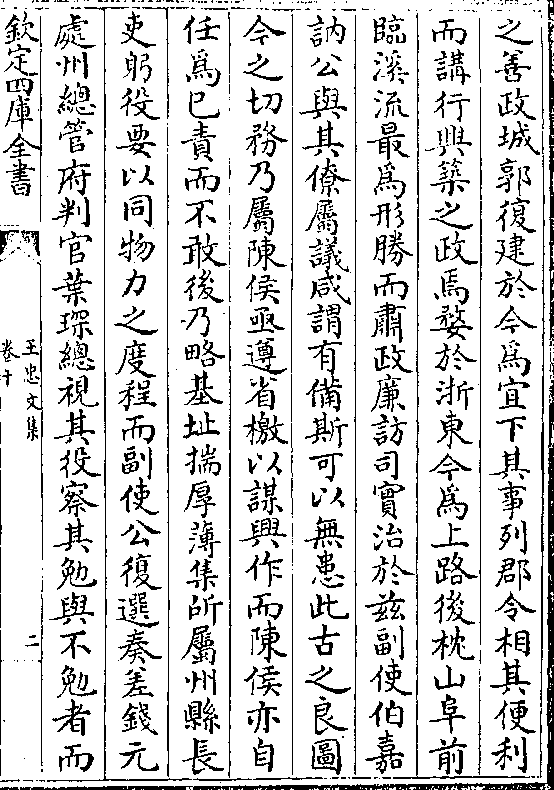 之善政城郭復建於今為宜下其事列郡令相其便利
而講行興築之政焉婺於浙東今為上路後枕山阜前
臨溪流最為形勝而肅政廉訪司實治於兹副使伯嘉
訥公與其僚屬議咸謂有備斯可以無患此古之良圖
今之切務乃屬陳侯亟遵省檄以謀興作而陳侯亦自
任為已責而不敢後乃略基址揣厚薄集所屬州縣長
吏躬役要以同物力之度程而副使公復選奏差錢元
處州總管府判官葉琛總視其役察其勉與不勉者而
欽定四庫全書
王忠文集
卷十
二